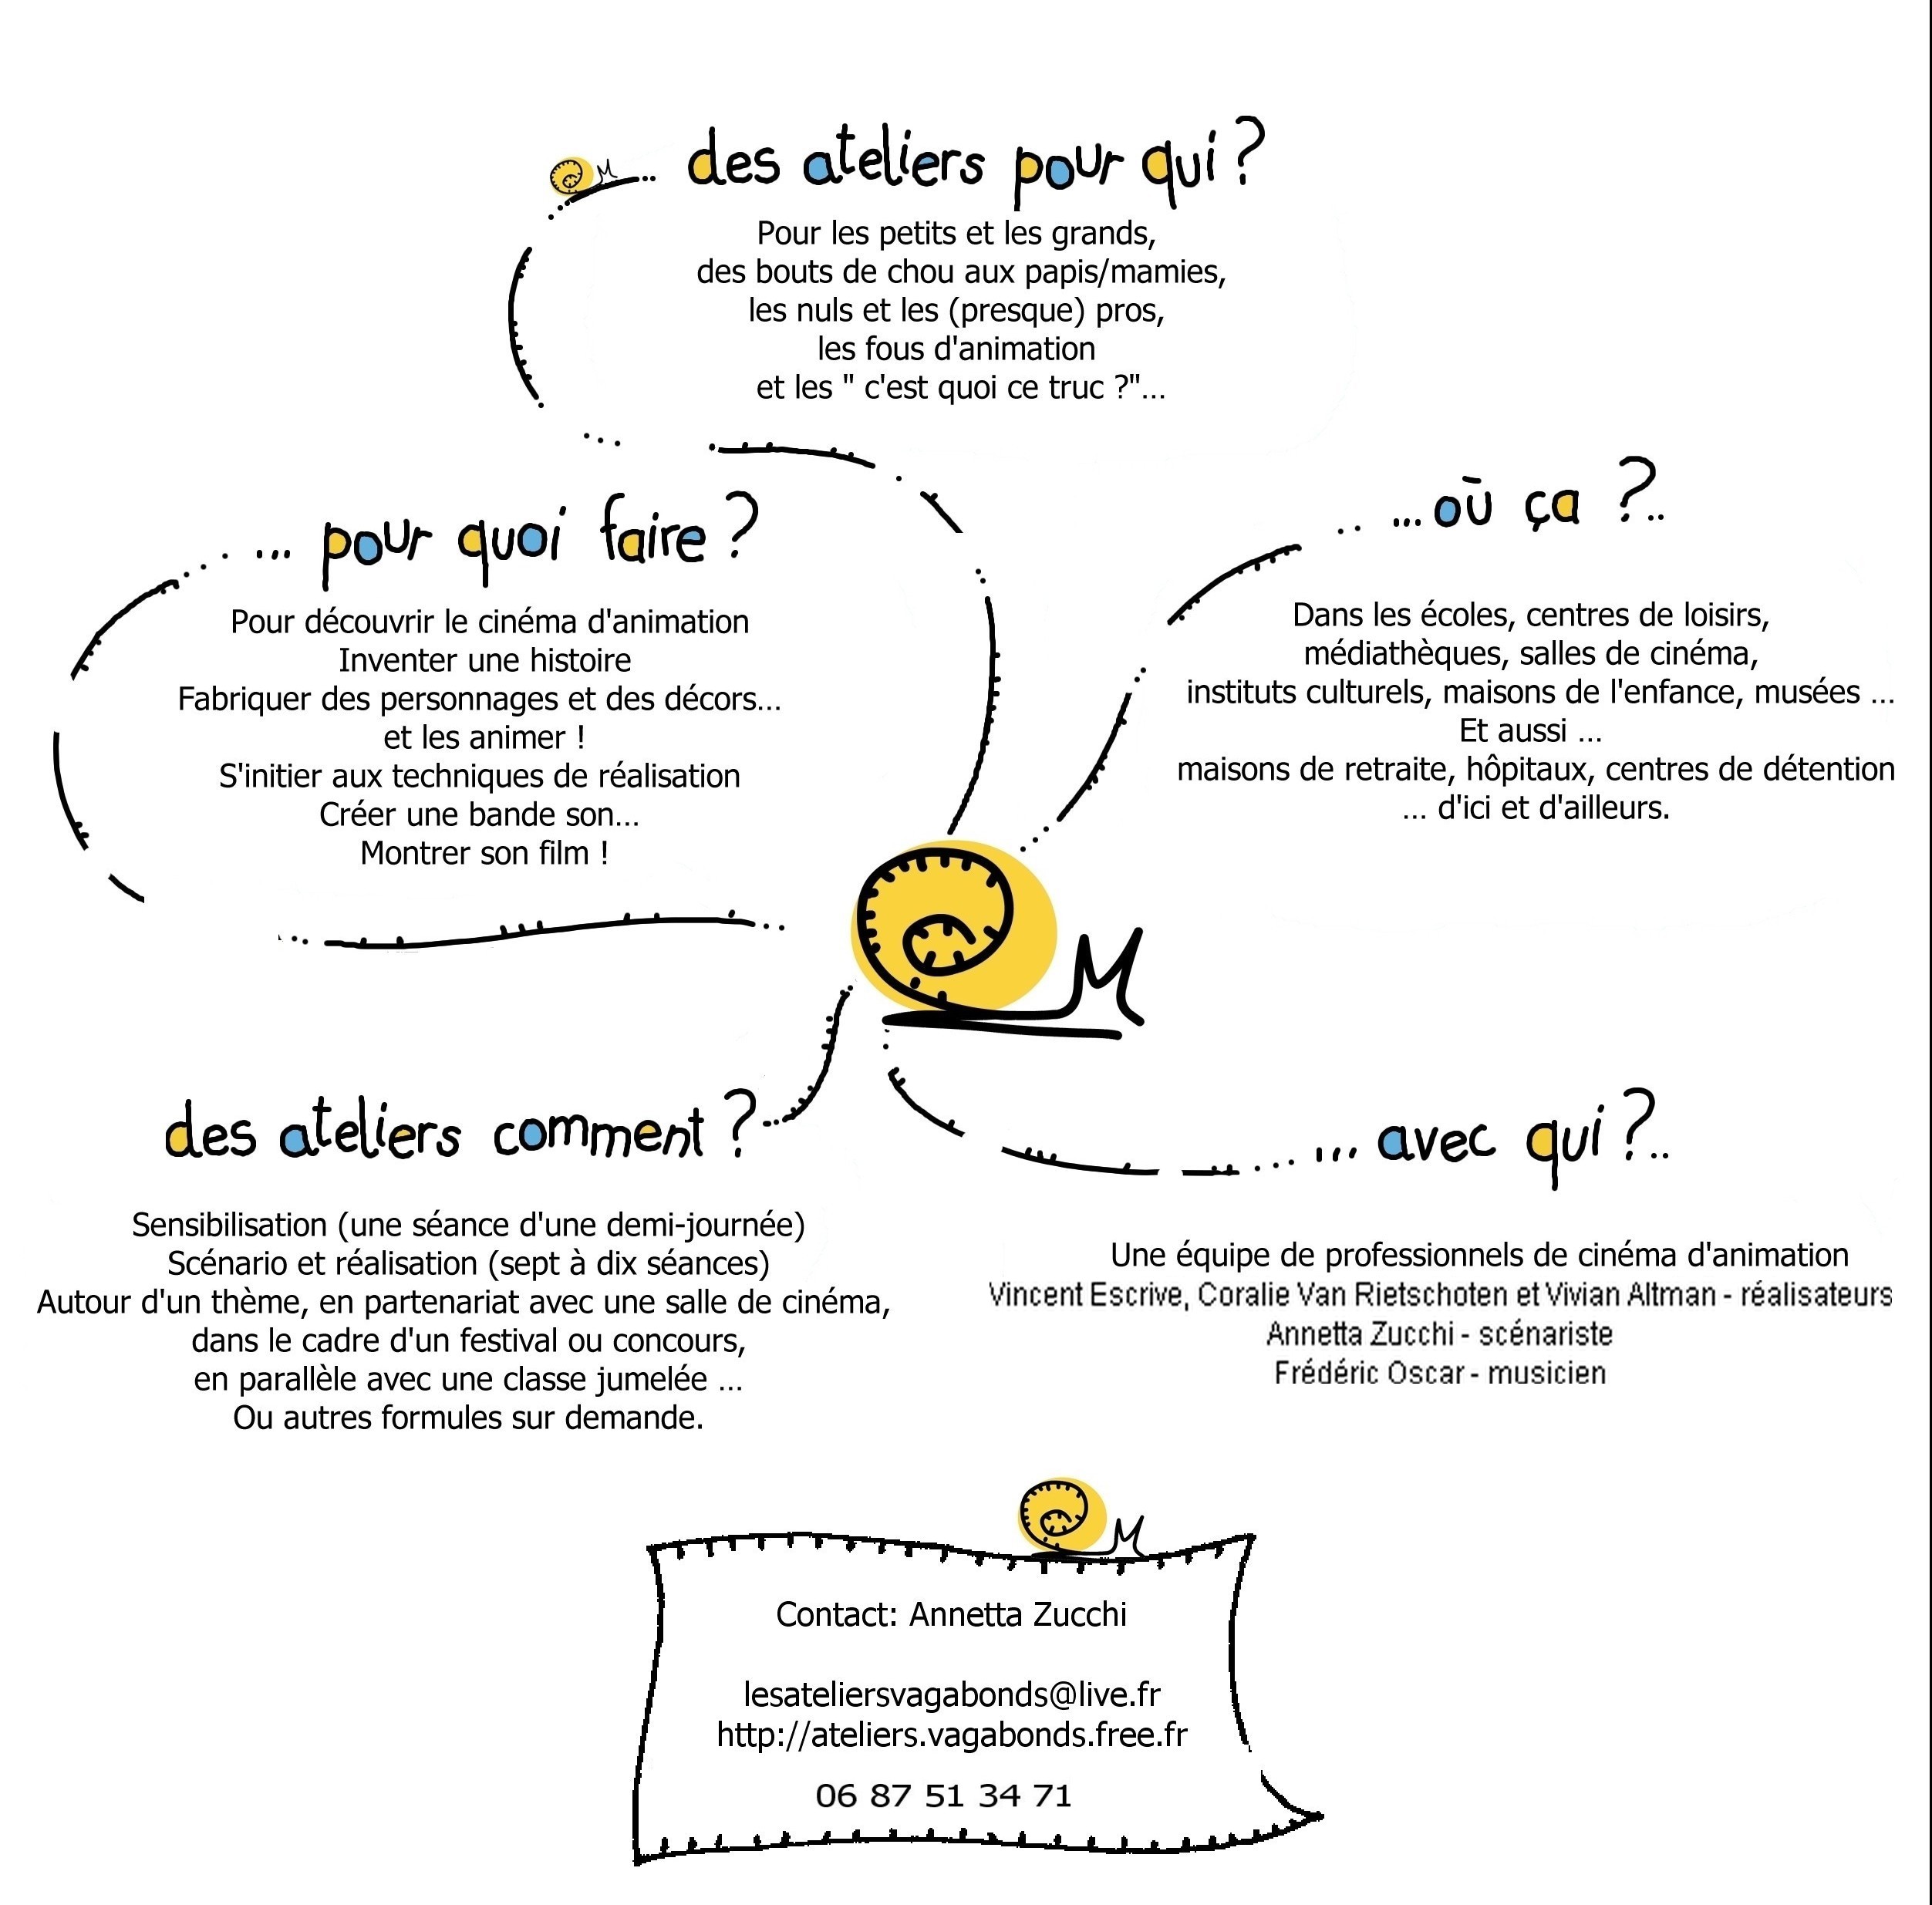 des ateliers pour qui ?
Pour les petits et les grands,
des bouts de chou aux papis/mamies,
les nuls et les (presque) pros,
les fous d'animation
et les " c'est quoi ce truc ?"...
... pour quoi faire ?
Pour découvrir le cinéma d'animation
Inventer une histoire
Fabriquer des personnages et des décors...
et les animer !
S'initier aux techniques de réalisation
Créer une bande son...
Montrer son film !
...où ça ?..
Dans les écoles, centres de loisirs,
médiathèques, salles de cinéma,
instituts culturels, maisons de l'enfance, musées ...
Et aussi ...
maisons de retraite, hôpitaux, centres de détention
... d'ici et d'ailleurs.
des ateliers comment ?
Sensibilisation (une séance d'une demi-journée)
Scénario et réalisation (sept à dix séances)
Autour d'un thème, en partenariat avec une salle de cinéma,
dans le cadre d'un festival ou concours,
en parallèle avec une classe jumelée ...
Ou autres formules sur demande.
... avec qui ?..
Une équipe de professionnels de cinéma d'animation
Vincent Escrive, Coralie Van Rietschoten et Vivian Altman - réalisateurs
Annetta Zucchi - scénariste
Frédéric Oscar - musicien
Contact: Annetta Zucchi
lesateliersvagabonds@live.fr
http://ateliers.vagabonds.free.fr
06 87 51 34 71